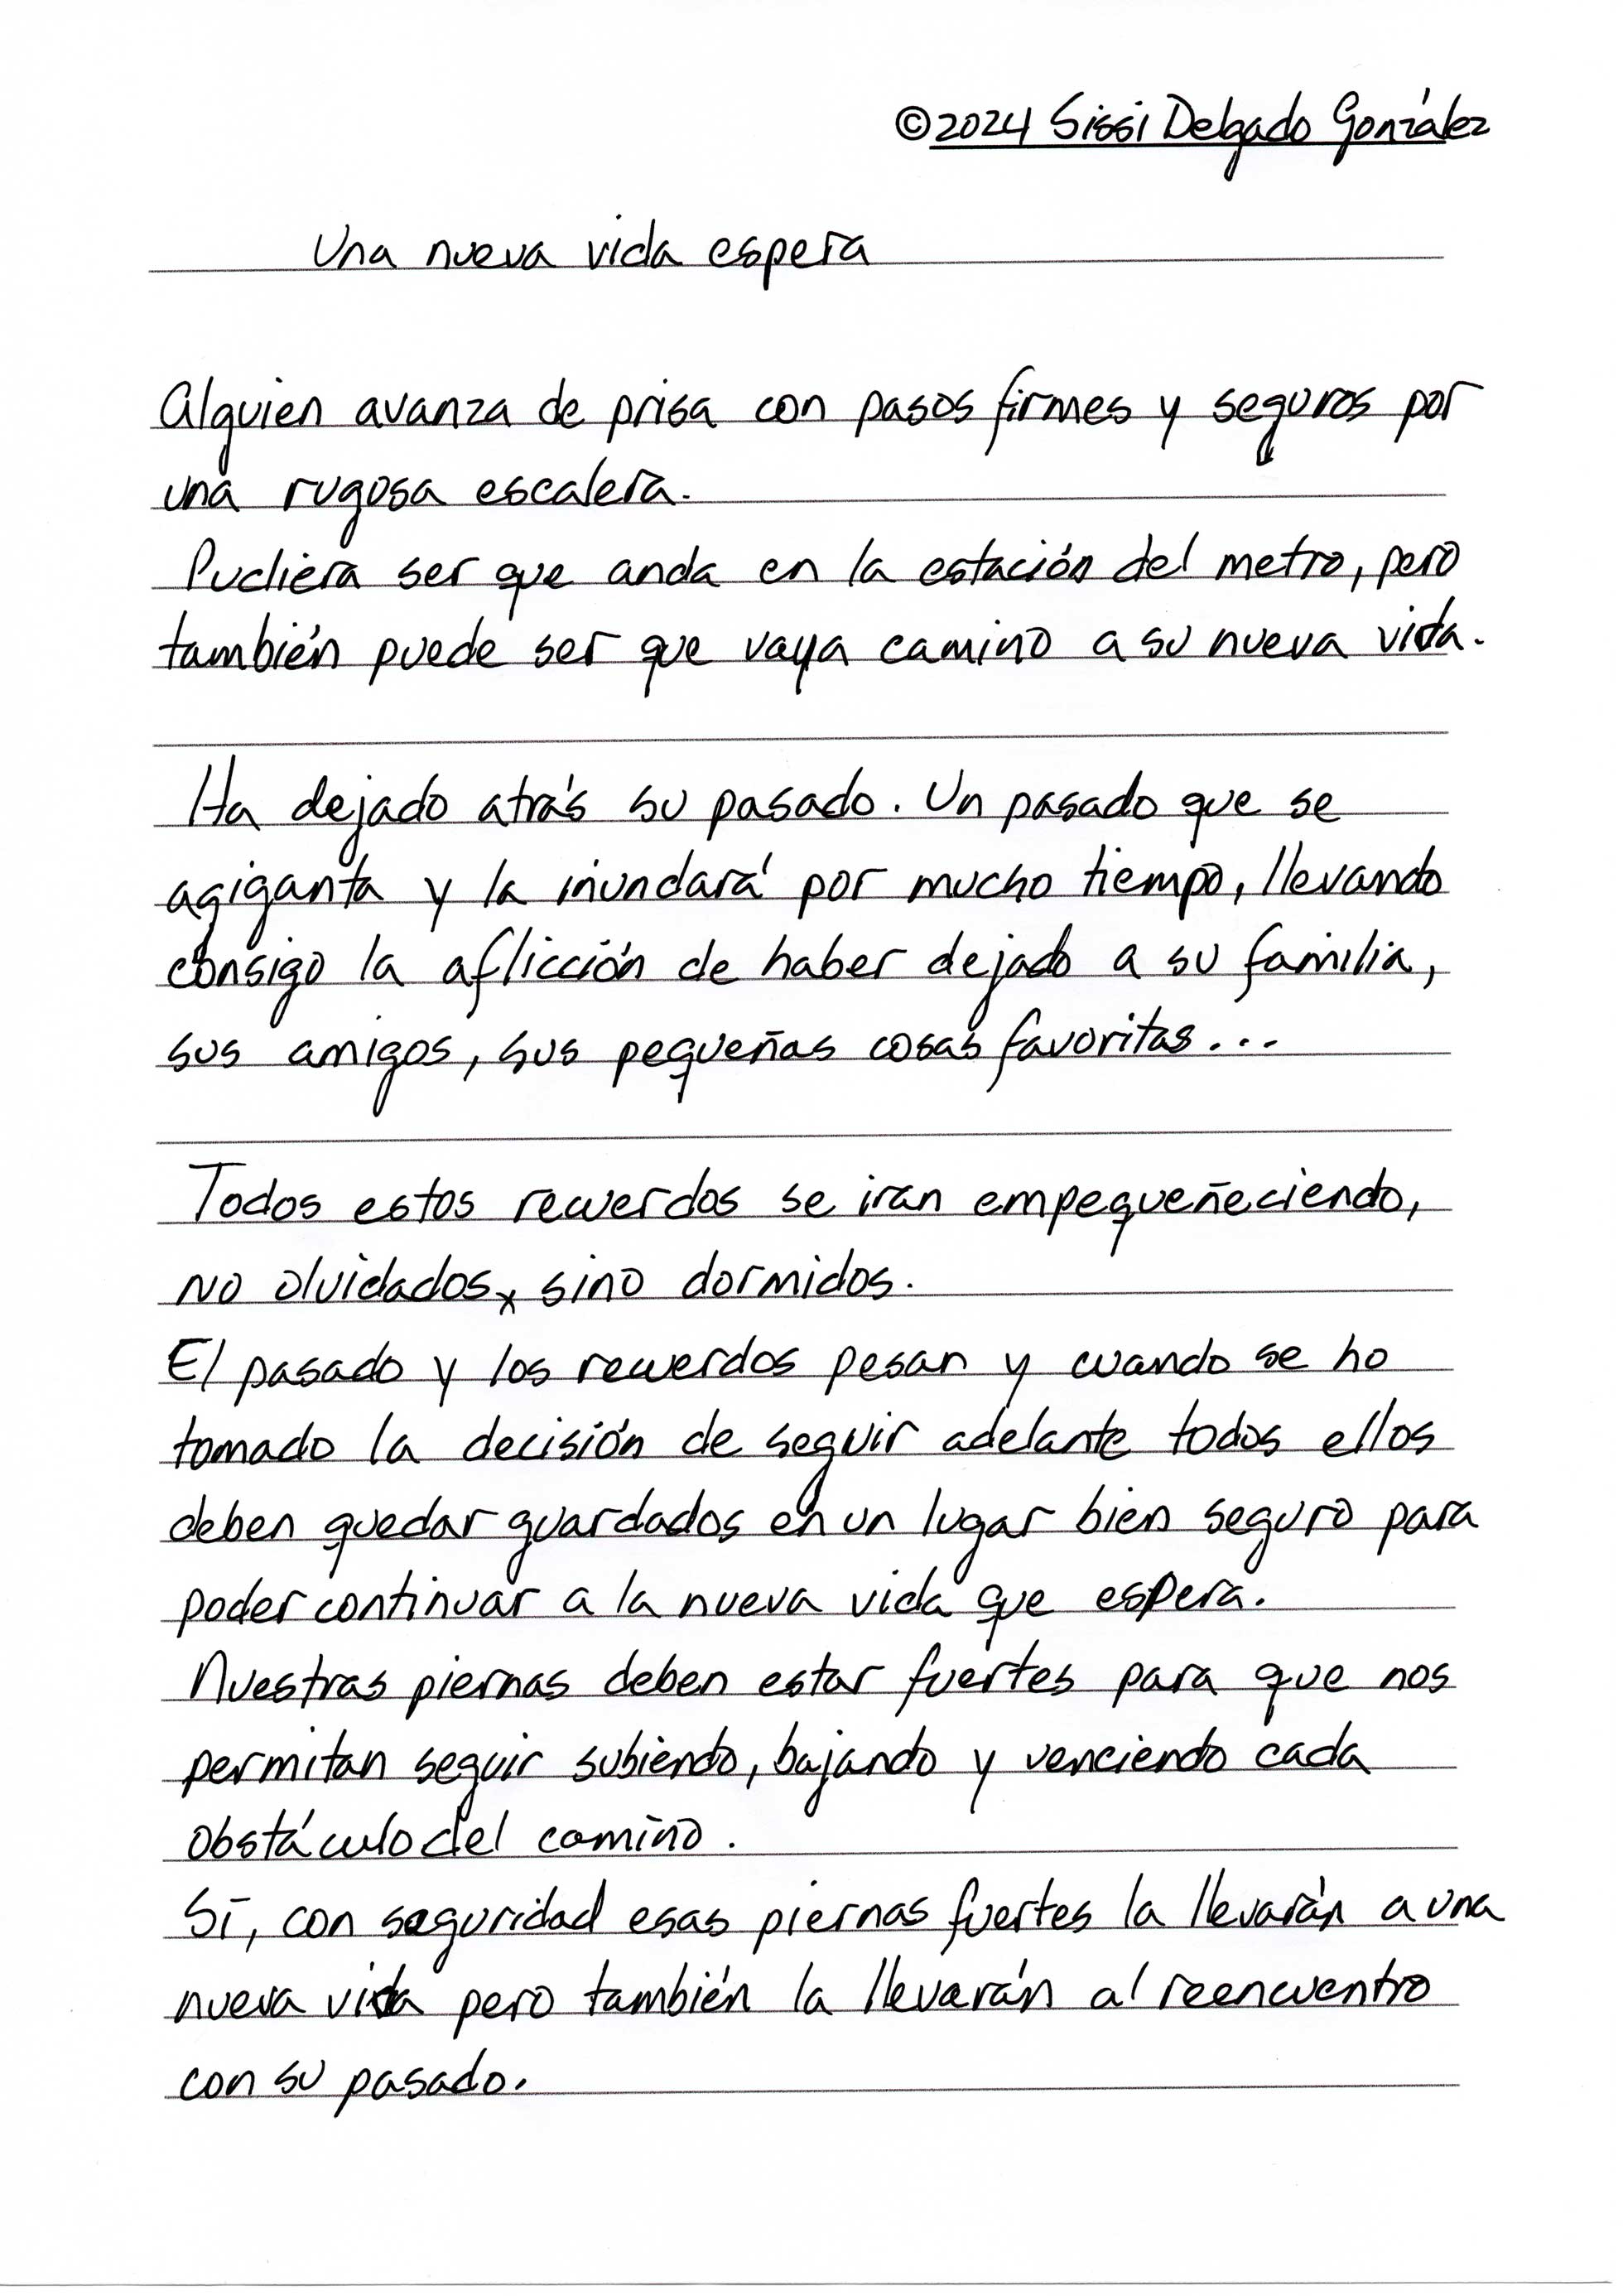 ©2024 Sissi Delgado González
Una nueva vida espera
Alguien avanza de prisa con pasos firmes y seguros por
una rugosa escalera.
Pudiera ser que anda en la estación del metro, pero
también puede ser que vaya camino a su nueva vida.
Ha dejado atrás su pasado. Un pasado que se
agiganta y la inundará por mucho tiempo, llevando
consigo la aflicción de haber dejado a su familia,
sus amigos, sus pequeñas cosas favoritas...
Todos estos recuerdos se iran empequeñeciendo,
no olvidados, sino dormidos.
El pasado y los recuerdos pesan y cuando se ho
tomado la decisión de seguir adelante todos ellos
deben quedar guardados en un lugar bien seguro para
poder continuar a la nueva vida que espera.
Nuestras piernas deben estar fuertes para que nos
permitan seguir subiendo, bajando y venciendo cada
obstáculo del camino.
Sí, con seguridad esas piernas fuertes la llevarán a una
nueva vida pero también la llevarán al reencuentro
con su pasado.